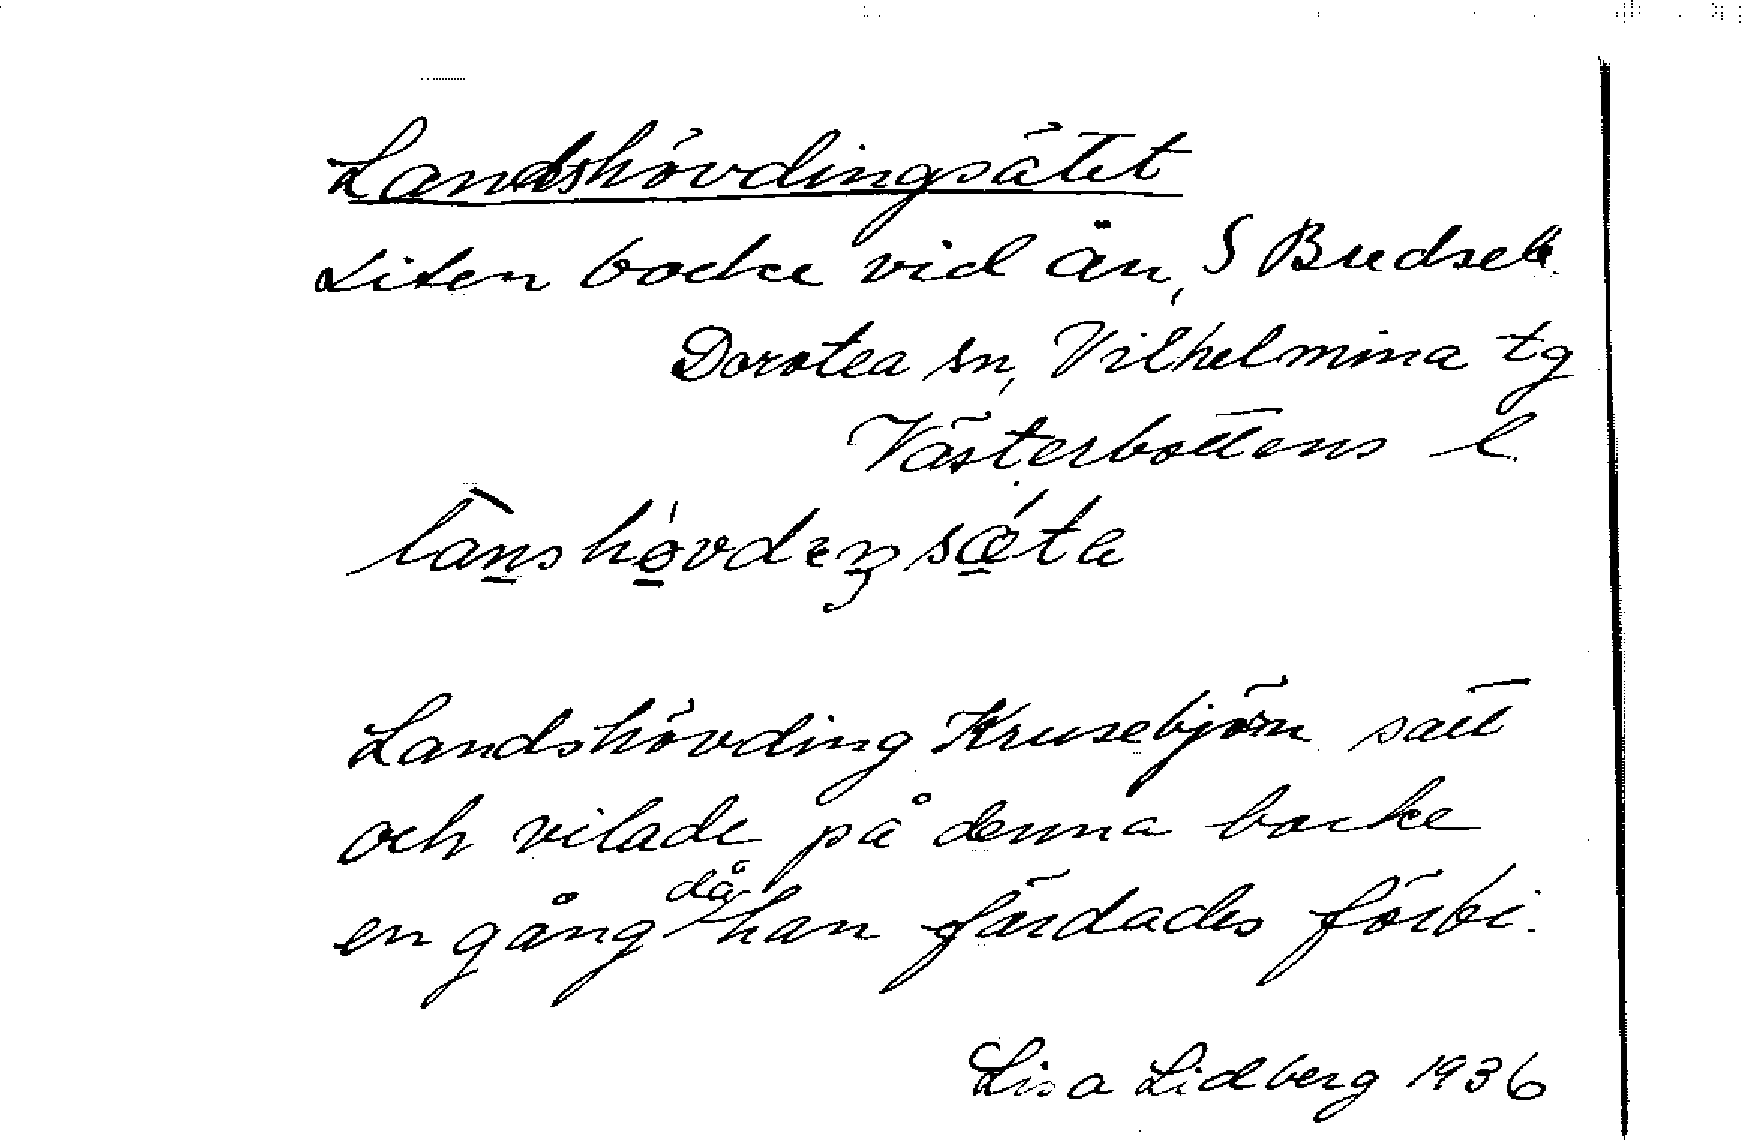 Landshövdingsätet
Liten backe vid ån, S Bredsele
Dorotea sn, Vilhelmina tg
Västerbottens l
lanshövdıŋsæ̀ta
Landshövding Krusebjörn satt
och vilade på denna backe
en gång då han färdades förbi.
Lisa Lidberg 1936